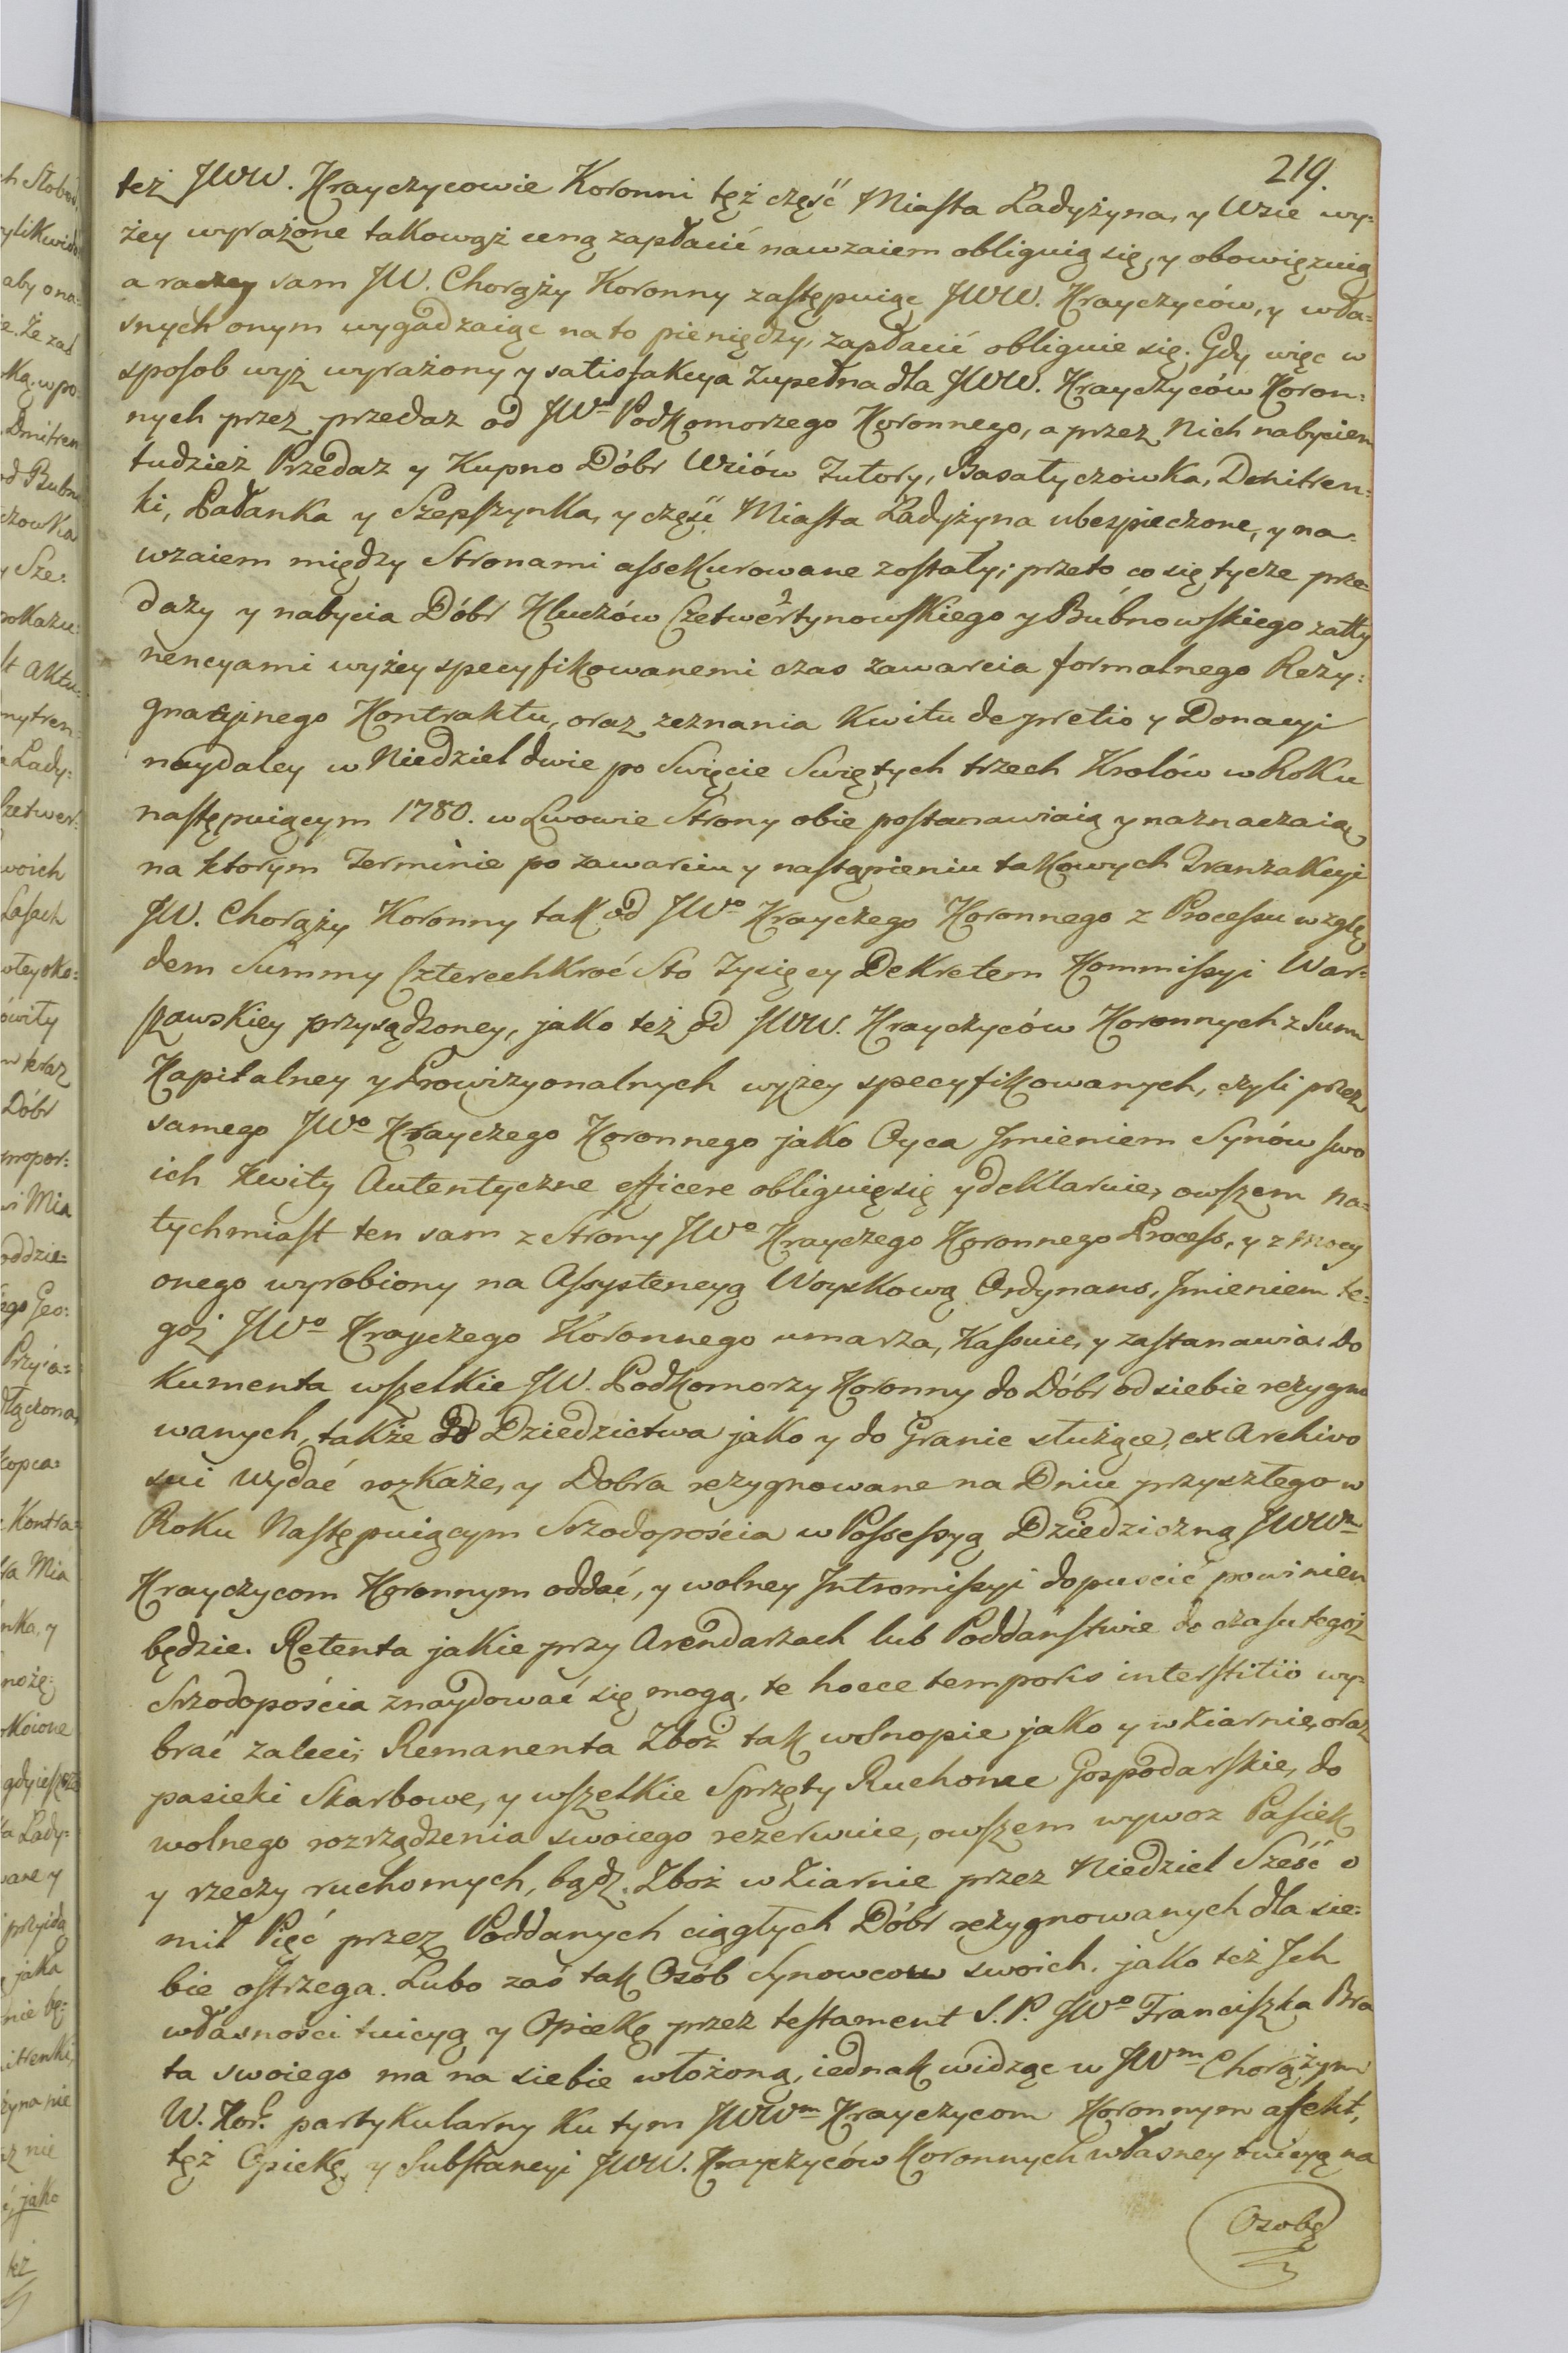 219.
też JWW. Krayczycowie Koronni tęż część Miasta Ładyżyna, y Wsie wy=
żey wyrażone takowąż ceną zapłacić nawzaiem obliguią się, y obowięzuią
a raczey sam JW. Chorąży Koronny zastępuiąc JWW. Krayczyców, y wła=
snych onym wygadzaiąc na to pieniędzy, zapłacić obliguie się. Gdy więc w
sposob wyż wyrażony y satisfakcya zupełna dla JWW. Krayczyców Koron=
nych przez przedaż od JWo Podkomorzego Koronnego, a przez Nich nabyciem
tudzież Przedaż y Kupno Dóbr Wsiów Tutory, Basałyczowka, Dmitren=
ki, Pałanka y Szepszynka, y część Miasta Ładyżyna ubezpieczone, y na=
wzaiem między Stronami assekurowane zostały; przeto co się tycze prze=
daży y nabycia Dóbr Kluczów Czetwertynowskiego y Bubnowskiego z atty
nencyami wyżey specyfikowanemi czas zawarcia formalnego Rezy=
gnacyinego Kontraktu, oraz zeznania Kwitu de pretio y Donacyi
naydaley w Niedziel dwie po Swięcie Swiętych trzech Krolów w Roku
następuiącym 1780. w Lwowie Strony obie postanawiaią y naznaczaią,
na ktorym Terminie po zawarciu y nastąpieniu takowych Tranzakcyi
JW. Chorąży Koronny tak od JWo Krayczego Koronnego z Processu wzglę
dem Summy Czterechkroć Sto Tysięcy Dekretem Kommissyi War=
szawskiey przysądzoney, jako też od JWW. Krayczyców Koronnych z Summ
Kapitalney y Prowizyonalnych wyżey specyfikowanych, czyli przez
samego JWo Krayczego Koronnego jako Oyca Jmieniem Synów swo
ich Kwity Autentyczne efficere obliguię się y deklaruie, owszem na=
tychmiast ten sam z Strony JWo Krayczego Koronnego Process, y z mocy
onego wyrobiony na Assystencyą Woyskową Ordynans, Jmieniem te=
goż JWo Krayczego Koronnego umarza, Kassuie, y zastanawia. Do
kumenta wszelkie JW. Podkomorzy Koronny do Dóbr od siebie rezygno
wanych, także do Dziedzictwa jako y do Granic służące, ex Archivo
sui wydać rozkaże, y Dobra rezygnowane na Dniu przyszłego w
Roku Następuiącym Srzodopościa w Possessyą Dziedziczną JWWm
Krayczycom Koronnym oddać, y wolney Intromissyi dopuscić powinien
będzie. Retenta jakie przy Arendarzach lub Poddaństwie do czasu tegoż
Srzodopościa znaydować się mogą, te hocce temporis interstitiô wy=
brać zaleci, Remanenta Zboż tak w snopie jako y w ziarnie, oraz
pasieki Skarbowe, y wszelkie Sprzęty Ruchome Gospodarskie, do
wolnego rozrządzenia swoiego rezerwuie, owszem wywoz Pasiek
y rzeczy ruchomych, bądź Zboż w ziarnie przez Niedziel Sześć o
mil Pięć przez Poddanych ciągłych Dóbr rezygnowanych dla sie=
bie ostrzega. Lubo zaś tak Osób Synowcow swoich, jako też Jch
własności tuicyą y Opiekę przez testament S. P. JWo Franciszka Bra
ta swoiego ma na siebie włożoną, iednak widząc w JWm Chorążym
W. Kor. partykularny ku tym JWWm Krayczycom Koronnym afekt,
tęż Opiekę, y Substancyi JWW. Krayczyców Koronnych własney tuicyą na
Osobę